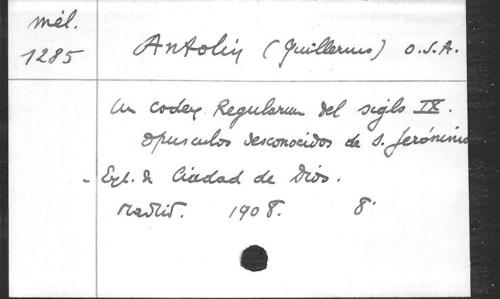 mél.
1285
Antolin (Guillermo) O.S.A.
Un codex Regularum del siglo IX.
Opusculos desconocidos de S. Jerónimo
- Ext. de Ciudad de Dios.
Madrid. 1908. 8°